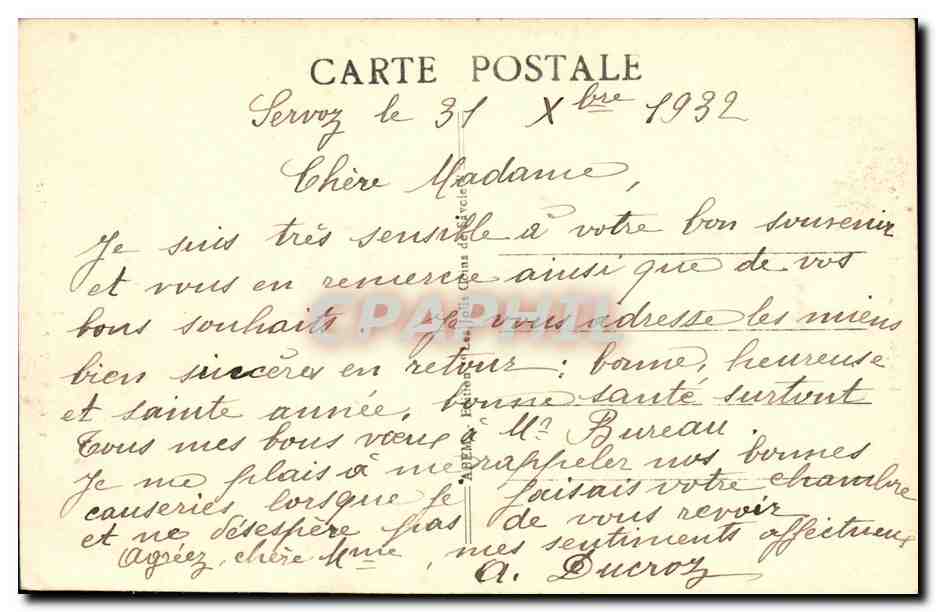 CARTE POSTALE
Servoz le 31 Xbre 1932
Chère Madame,
Je suis très sensible à votre bon souvenir
et vous en remercie ainsi que de vos
bons souhaits. Je vous adresse les miens
bien sincères en retour : bonne, heureuse
et sainte année, bonne santé surtout
Tous mes bons vœux à Mr Bureau.
Je me plais à me rappeler nos bonnes
causeries lorsque je faisais votre chambre
et ne désespère pas de vous revoir
Agréez, chère Mme, mes sentiments affectueux
A. Ducroz
Edition Les Jolis Coins de Savoie
CPAPHIL